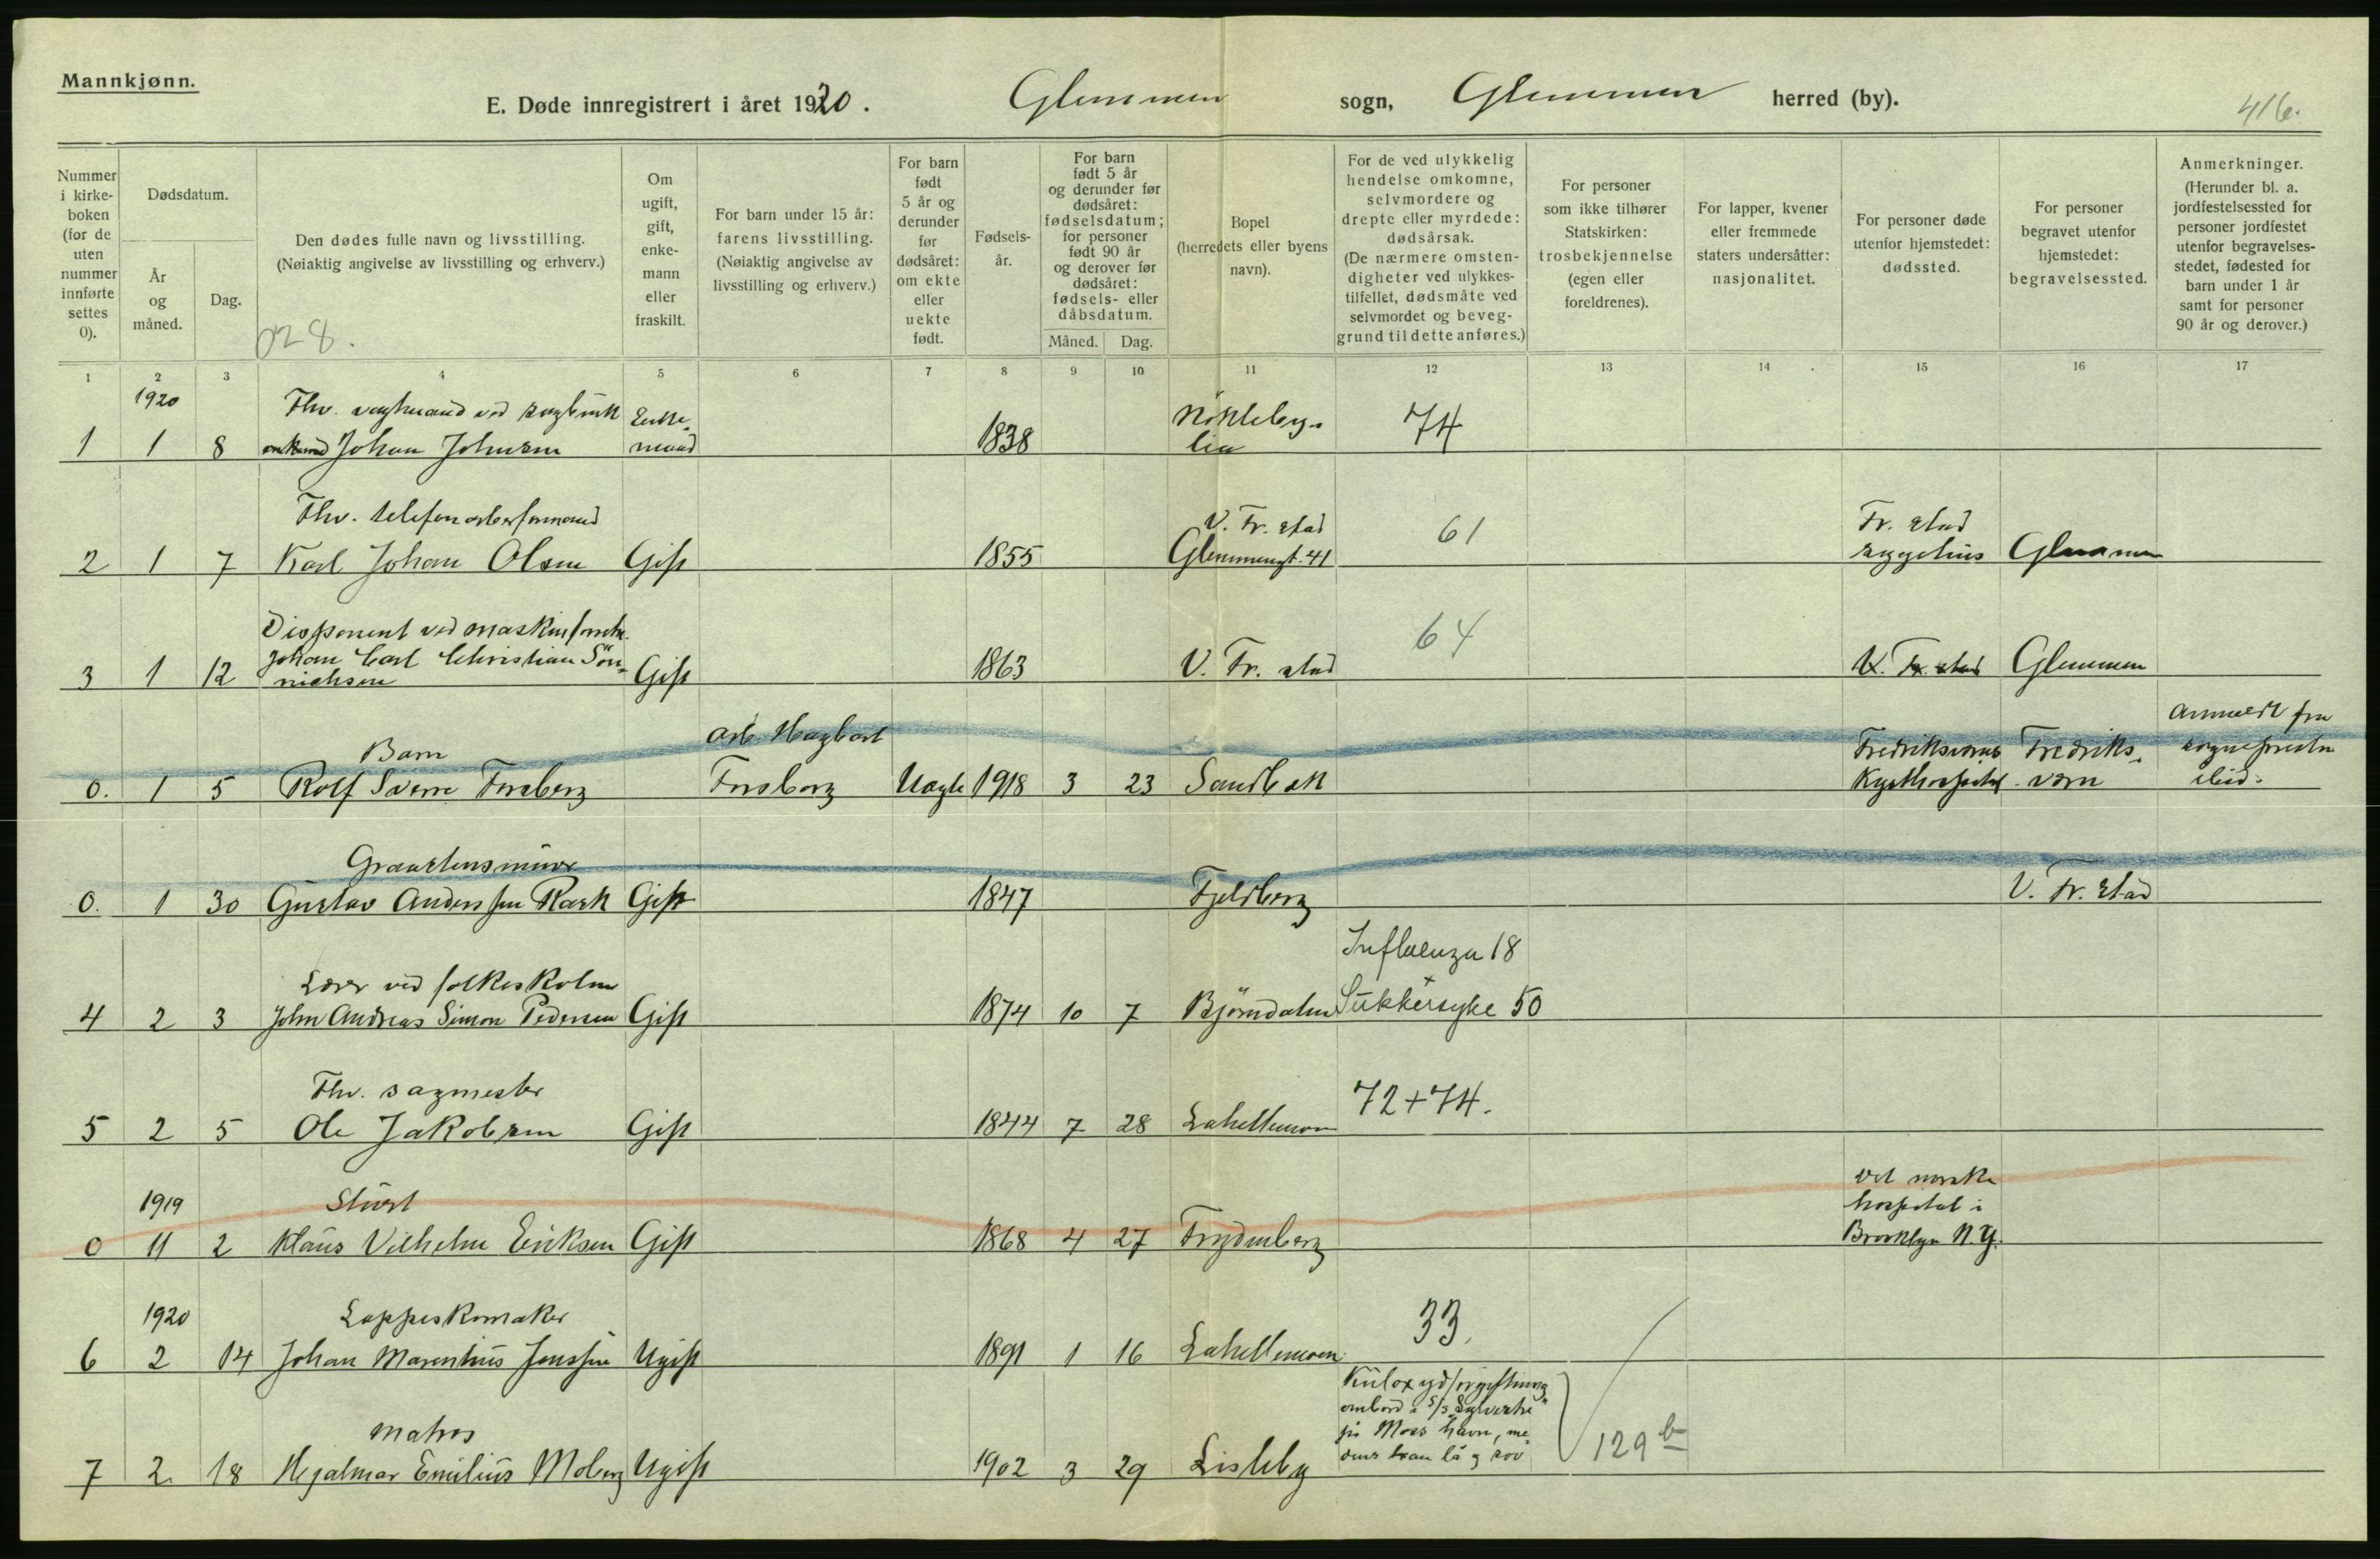 Mannkjønn.
E. Døde innregistrert i året 1920. Glemmen sogn, Glemmen herred (by). 416.
Nummer i kirke- boken (for de uten nummer innførte settes 0).
Dødsdatum.
År og måned.
Dag.
Den dødes fulle navn og livsstilling.
(Nøiaktig angivelse av livsstilling og erhverv.)
028.
Om ugift, gift, enke- mann eller fraskilt.
For barn under 15 år: farens livsstilling. (Nøiaktig angivelse av livsstilling og erhverv.)
For barn født 5 år og derunder før dødsåret: om ekte eller uekte født.
Fødsels- år.
For barn født 5 år og derunder før dødsåret: fødselsdatum; for personer født 90 år og derover før dødsåret: fødsels- eller dåbsdatum.
Måned. Dag.
Bopel (herredets eller byens navn).
For de ved ulykkelig hendelse omkomne, selvmordere og drepte eller myrdede: dødsårsak. (De nærmere omsten- digheter ved ulykkes- tilfellet, dødsmåte ved selvmordet og beveg- grund til dette anføres.)
For personer som ikke tilhører Statskirken: trosbekjennelse (egen eller foreldrenes).
For lapper, kvener eller fremmede staters undersåtter: nasjonalitet.
For personer døde utenfor hjemstedet: dødssted.
For personer begravet utenfor hjemstedet: begravelsessted.
Anmerkninger. (Herunder bl. a. jordfestelsessted for personer jordfestet utenfor begravelses- stedet, fødested for barn under 1 år samt for personer 90 år og derover.)
1 2 3 4 5 6 7 8 9 10 11 12 13 14 15 16 17
1920 Fhv. vagtmand ved sagbruk Enke- Nökleby- 74
1 1 8 Johan Johnsen mand 1838 lia
Fhv. telefonarbformand V. Fr. stad 61 Fr. stad
2 1 7 Karl Johan Olsen Gift 1855 Glemmengt. 41 sygehus Glemmen
Disponent ved maskinforretn. 64
Johan Carl Christian Sön-
3 1 12 nichsen Gift 1863 V. Fr. stad V. Fr. stad Glemmen
Barn arb. Hagbart Fredriksværns Fredriks- Anmeldt fra sognepresten
0. 1 5 Rolf Sverre Forsberg Forsberg Uægte 1918 3 23 Sandbæk Kysthospital værn ibid.
Graastensminør
0. 1 30 Gustav Anderssen Rask Gift 1847 Fjeldberg V. Fr. Stad
Influenza 18
Lærer ved folkeskolen
4 2 3 John Andreas Simon Pedersen Gift 1874 10 7 Björndalen Sukkersyke 50
Fhv. sagmester 72+74.
5 2 5 Ole Jakobsen Gift 1844 7 28 Lahellemoen
1919 Stuert Det norske hospital i
0 11 2 Klaus Vilhelm Eriksen Gift 1868 4 27 Frydenberg Brooklyn N.Y.
1920 Lappeskomaker 33.
6 2 14 Johan Marentius Jonssen Ugift 1891 1 16 Lahellemoen
Kuloxydforgiftning
ombord i S/S "Sylvestre"
Matros på Moss havn, me-
7 2 18 Hjalmar Emilius Moberg Ugift 1902 3 29 Lisleby dens han lå og sov 129 b